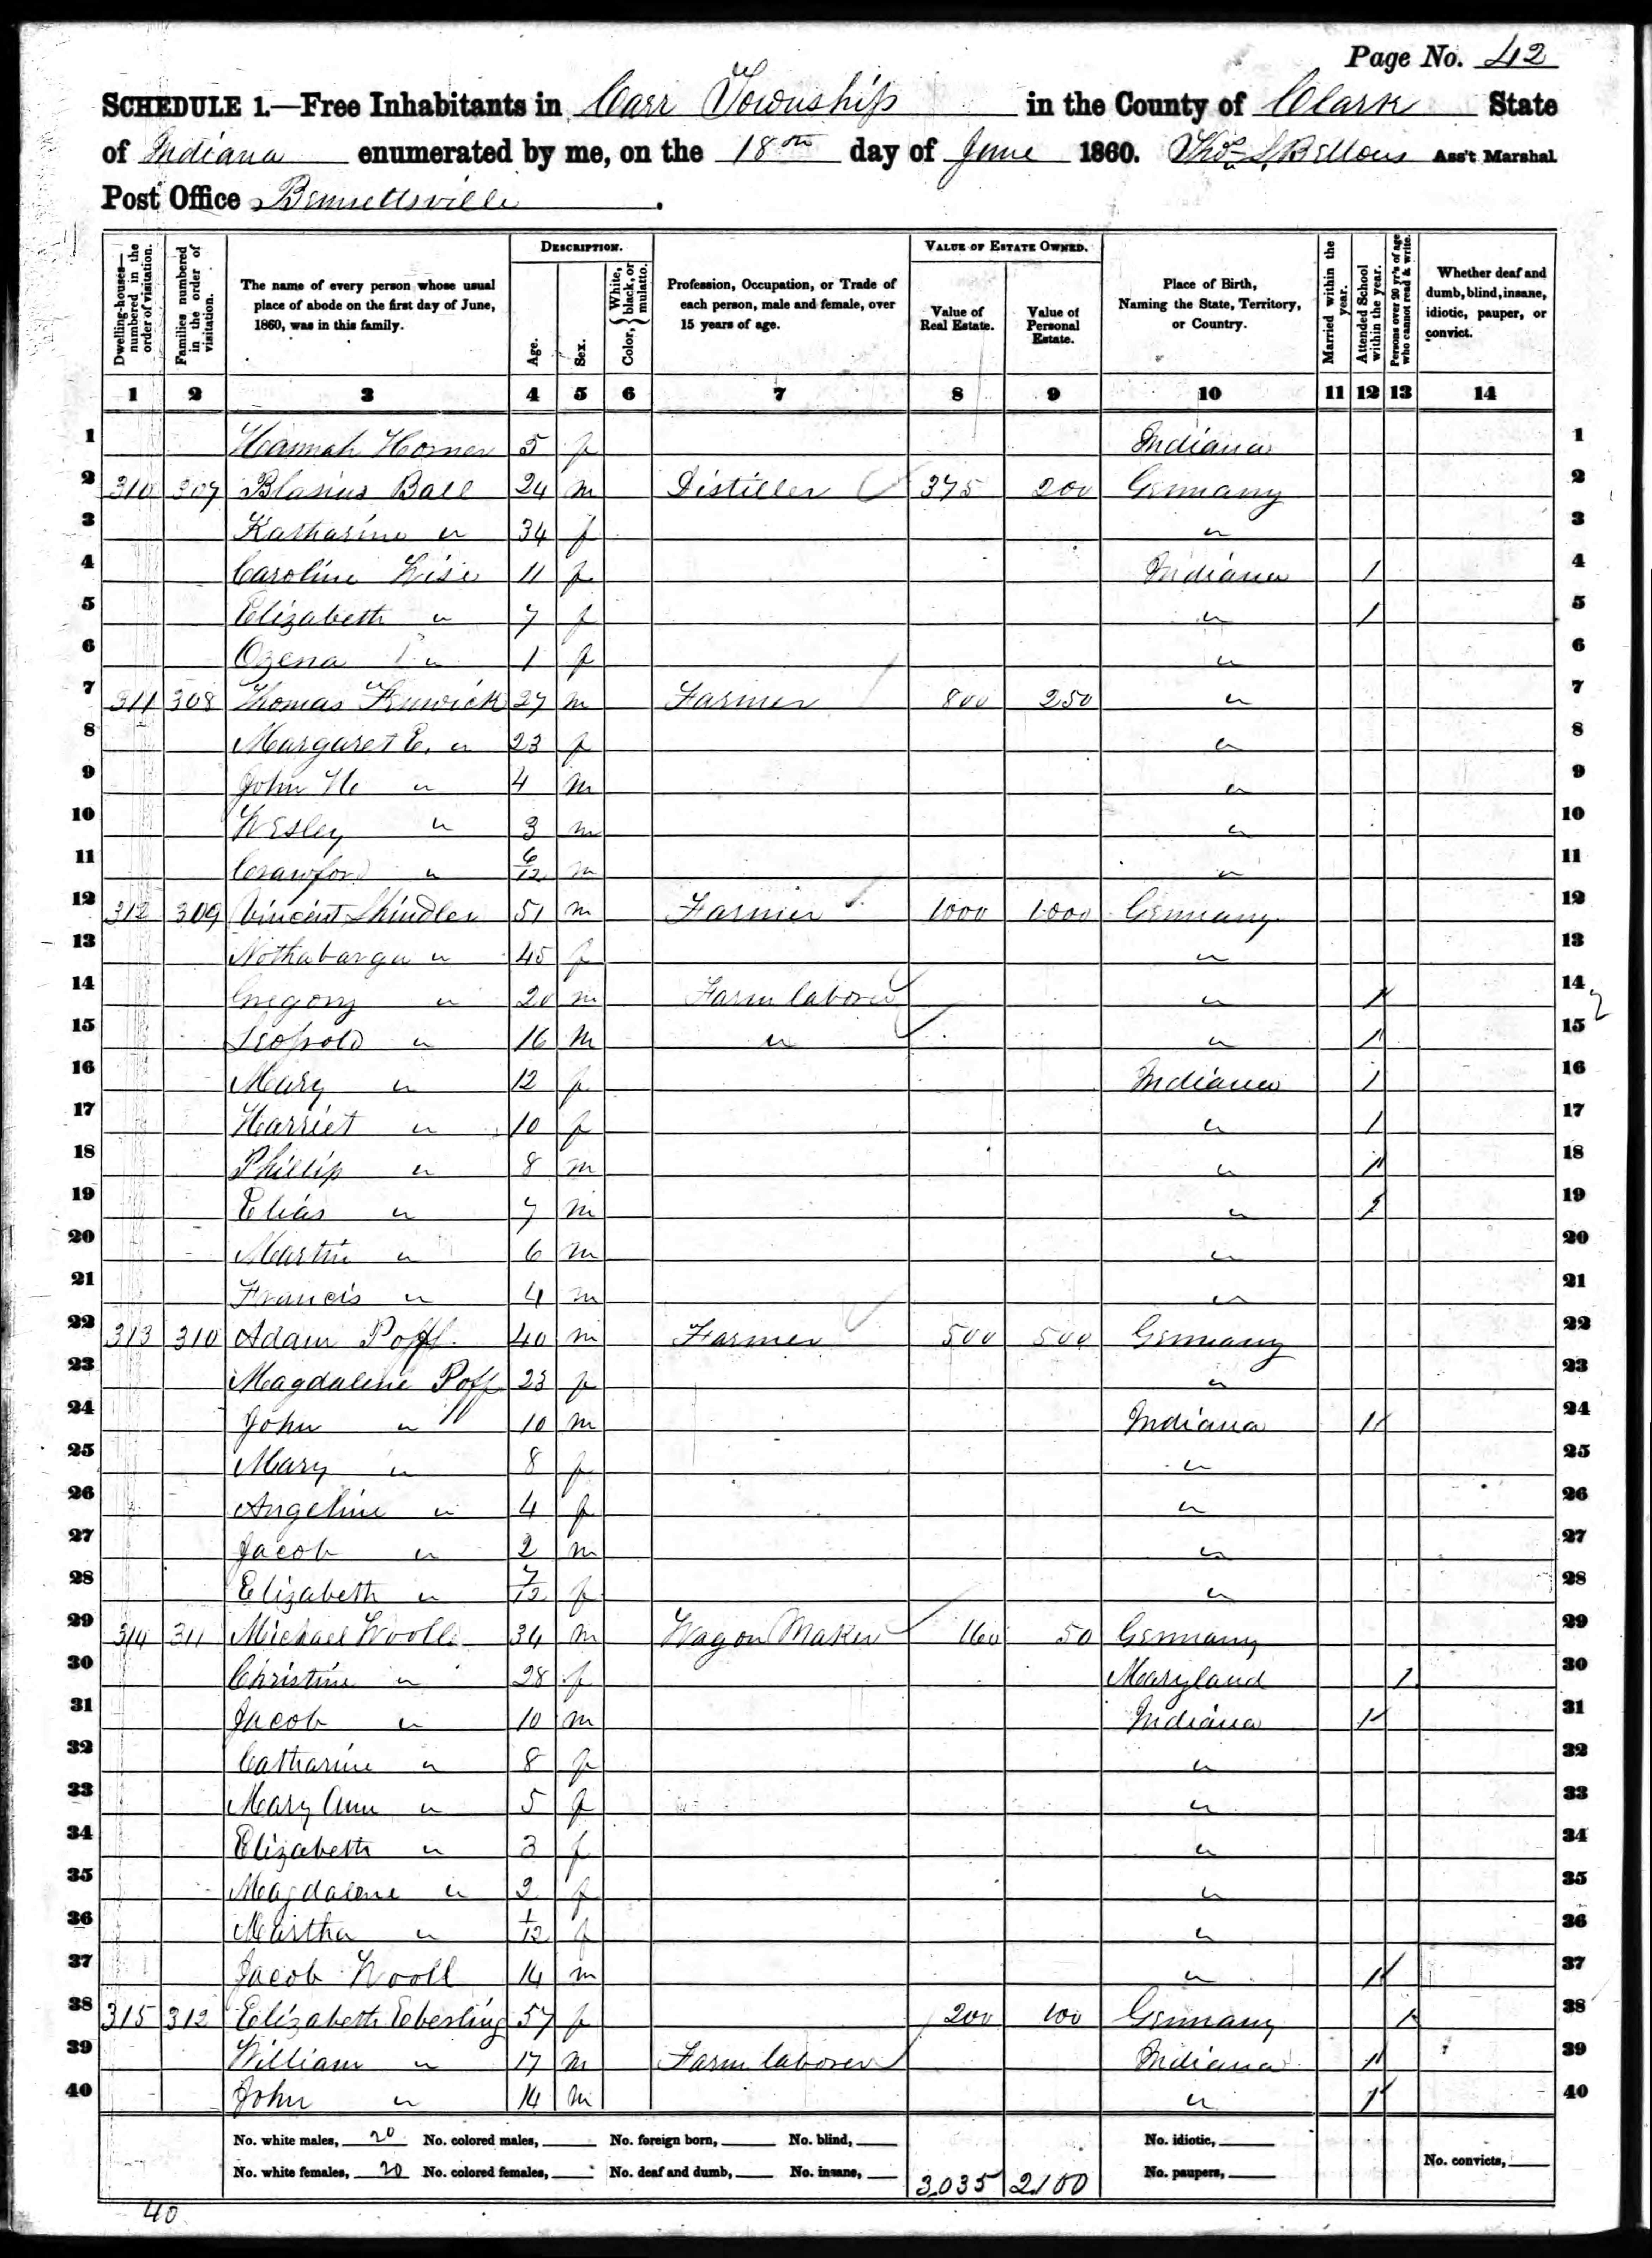 Page No. 42
SCHEDULE 1.—Free Inhabitants in Carr Township in the County of Clark State
of Indiana enumerated by me, on the 18th day of June 1860. Thos S. Bellows Ass't Marshal
Post Office Bennettsville.
Dwelling-houses—numbered in the order of visitation. Families numbered in the order of visitation. The name of every person whose usual place of abode on the first day of June, 1860, was in this family. DESCRIPTION. Age. Sex. Color, {White, black, or mulatto. Profession, Occupation, or Trade of each person, male and female, over 15 years of age. VALUE OF ESTATE OWNED. Value of Real Estate. Value of Personal Estate. Place of Birth, Naming the State, Territory, or Country. Married within the year. Attended School within the year. Persons over 20 y'rs of age who cannot read & write. Whether deaf and dumb, blind, insane, idiotic, pauper, or convict.
1 2 3 4 5 6 7 8 9 10 11 12 13 14
1 Hannah Horner 5 f Indiana 1
2 310 307 Blasius Ball 24 m Distiller 375 200 Germany 2
3 Katharine " 34 f " 3
4 Caroline Wise 11 f Indiana 1 4
5 Elizabeth " 7 f " 1 5
6 Ozena " 1 f " 6
7 311 308 Thomas 27 m Farmer 800 250 " 7
8 Margaret E. " 23 f " 8
9 John H " 4 m " 9
10 Wesley " 3 m " 10
11 Crawford " 6/12 m " 11
12 312 309 Vincent Shindler 51 m Farmer 1000 1000 Germany 12
13 Nothabarga " 45 f " 13
14 Gregory " 20 m Farm laborer " 1 14
15 Leopold " 16 m " " 1 15
16 Mary " 12 f Indiana 1 16
17 Harriet " 10 f " 1 17
18 Phillip " 8 m " 1 18
19 Elias " 7 m " 1 19
20 Martin " 6 m " 20
21 Francis " 4 m " 21
22 313 310 Adam Poff 40 m Farmer 500 500 Germany 22
23 Magdalene Poff 23 f " 23
24 John " 10 m Indiana 1 24
25 Mary " 8 f " 25
26 Angeline " 4 f " 26
27 Jacob " 2 m " 27
28 Elizabeth " 7/12 f " 28
29 314 311 Michael Wooll 34 m Wagon Maker 160 50 Germany 29
30 Christine " 28 f Maryland 1 30
31 Jacob " 10 m Indiana 1 31
32 Catharine " 8 f " 32
33 Mary Ann " 5 f " 33
34 Elizabeth " 3 f " 34
35 Magdalene " 2 f " 35
36 Martha " 1/12 f " 36
37 Jacob Wooll 14 m " 1 37
38 315 312 Elizabeth Eberling 57 f 200 100 Germany 1 38
39 William " 17 m Farm laborer Indiana 1 39
40 John " 14 m " 1 40
No. white males, 20 No. colored males, No. foreign born, No. blind, No. idiotic,
No. white females, 20 No. colored females, No. deaf and dumb, No. insane, 3,035 2,100 No. paupers, No. convicts,
40